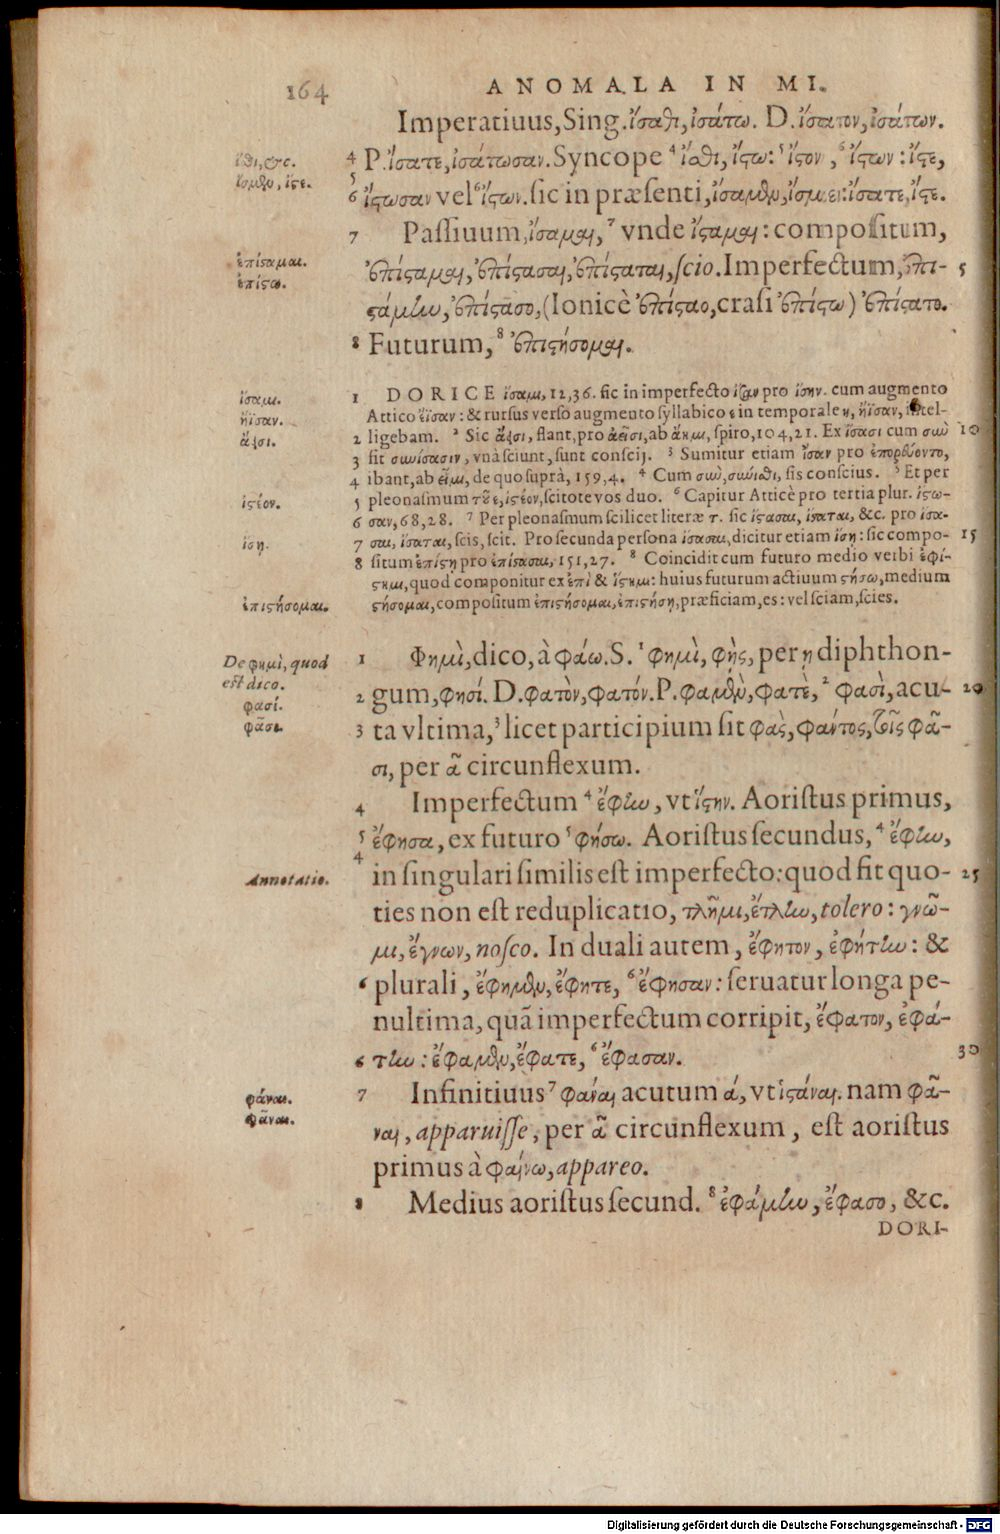 164 ANOMALA IN MI.
Imperatiuus, Sing. ἴσαθι, ἰσάτω. D. ἴσατον, ἰσάτων.
ἴϑι, &c. 4 P. ἴσατε, ἰσάτωσαν. Syncope ⁴ ἴσθι, ἴστω: ⁵ ἴστον, ⁶ ἴστων: ἴστε,
ἴσμεν, ἴστε. 5
6 ἴστωσαν vel ⁶ ἴστων. sic in præsenti, ἴσαμεν, ἴσμεν: ἴσατε, ἴστε.
7 Passiuum, ἴσαμαι, ⁷ vnde ἴσταμαι: compositum,
ἐπίσταμαι. ἐπίσταμαι, ἐπίστασαι, ἐπίσταται, scio. Imperfectum, ἐπι- 5
ἐπίστω. στάμην, ἐπίστασο, (Ionicè ἐπίσταο, crasi ἐπίστω) ἐπίστατο.
8 Futurum, ⁸ ἐπιστήσομαι.
ἴσαμι. 1 DORICE ἴσαμι, 12, 36. sic in imperfecto ἴσαν pro ἴσην. cum augmento
ἤϊσαν. Attico ἔϊσαν: & rursus verso augmento syllabico ε in temporale η, ἤϊσαν, intel-
ἄεισι. 2 ligebam. ² Sic ἄεισι, flant, pro ἀεῖσι, ab ἄημι, spiro, 104, 21. Ex ἴσασι cum σωὺ 10
3 fit σωίσασιν, vnà sciunt, sunt conscij. ³ Sumitur etiam ἴσαν pro ἐπορεύοντο,
4 ibant, ab εἶμι, de quo suprà, 159, 4. ⁴ Cum σωὺ, σωύισθι, sis conscius. ⁵ Et per
ἰστέον. 5 pleonasmum τοῦ ε, ἰστέον, scitote vos duo. ⁶ Capitur Atticè pro tertia plur. ἴστω-
6 σαν, 68, 28. ⁷ Per pleonasmum scilicet literæ τ. sic ἴστασαι, ἵσταται, &c. pro ἴσα-
ἴση. 7 σαι, ἴσαται, scis, scit. Pro secunda persona ἴσασαι, dicitur etiam ἴση: sic compo- 15
8 situm ἐπίστη pro ἐπίστασαι, 151, 27. ⁸ Coincidit cum futuro medio verbi ἐφί-
στημι, quod componitur ex ἐπὶ & ἵστημι: huius futurum actiuum στήσω, medium
ἐπιστήσομαι. στήσομαι, compositum ἐπιστήσομαι, ἐπιστήση, præficiam, es: vel sciam, scies.
De φημὶ, quod 1 Φημὶ, dico, à φάω. S. ¹ φημὶ, φῂς, per ῃ diphthon-
est dico. 2 gum, φησί. D. φατὸν, φατόν. P. φαμὲν, φατὲ, ² φασὶ, acu- 20
φασί.
φᾶσι. 3 ta vltima, ³ licet participium sit φὰς, φάντος, τοῖς φᾶ-
σι, per ᾶ circunflexum.
4 Imperfectum ⁴ ἔφην, vt ἵστην. Aoristus primus,
5 ἔφησα, ex futuro ⁵ φήσω. Aoristus secundus, ⁴ ἔφην,
4
Annotatio. in singulari similis est imperfecto: quod fit quo- 25
ties non est reduplicatio, τλῆμι, ἔτλην, tolero: γνῶ-
μι, ἔγνων, nosco. In duali autem, ἔφητον, ἐφήτην: &
6 plurali, ἔφημεν, ἔφητε, ⁶ ἔφησαν: seruatur longa pe-
nultima, quã imperfectum corripit, ἔφατον, ἐφά-
6 την: ἔφαμεν, ἔφατε, ⁶ ἔφασαν. 30
φάναι. 7 Infinitiuus ⁷ φάναι acutum ά, vt ἱστάναι. nam φᾶ-
φᾶναι. ναι, apparuisse, per ᾶ circunflexum, est aoristus
primus à φαίνω, appareo.
8 Medius aoristus secund. ⁸ ἐφάμην, ἔφασο, &c.
DORI-
Digitalisierung gefördert durch die Deutsche Forschungsgemeinschaft - DFG